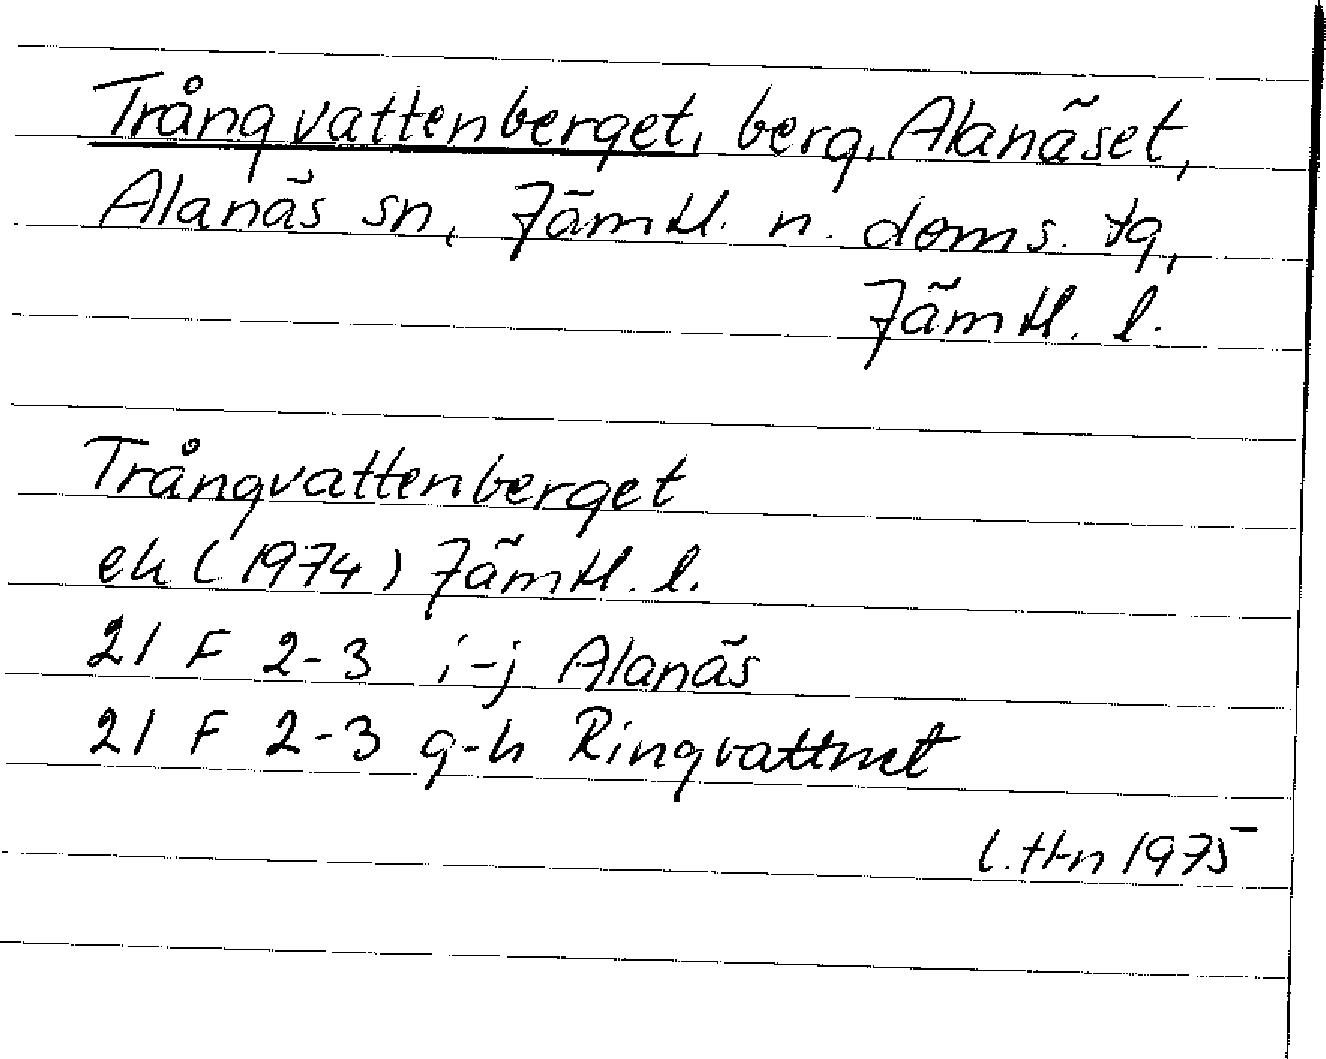 Trångvattenberget, berg, Alanäset,
Alanäs sn, Jämtl. n. doms. tg,
Jämtl. l.
Trångvattenberget
ek (1974) Jämtl. l.
21 F 2-3 i-j Alanäs
21 F 2-3 g-h Ringvattnet
1975